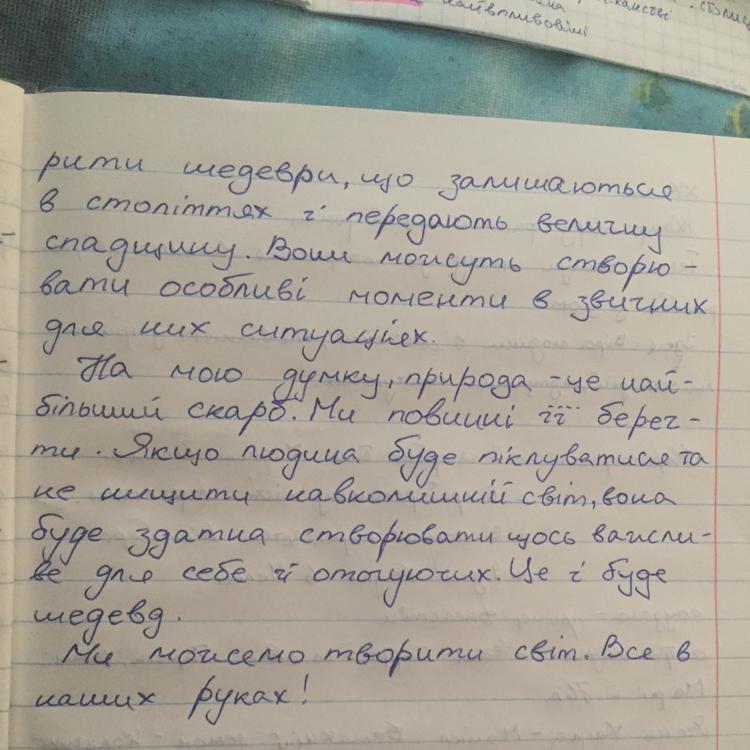 найвпливовіші
рити шедеври, що залишаються
в століттях і передають величну
спадщину. Вони можуть створю-
вати особливі моменти в звичних
для них ситуаціях.
На мою думку, природа - це най-
більший скарб. Ми повинні її берег-
ти. Якщо людина буде піклуватися та
не нищити навколишній світ, вона
буде здатна створювати щось важли-
ве для себе й оточуючих. Це і буде
шедевд.
Ми можемо творити світ. Все в
наших руках!